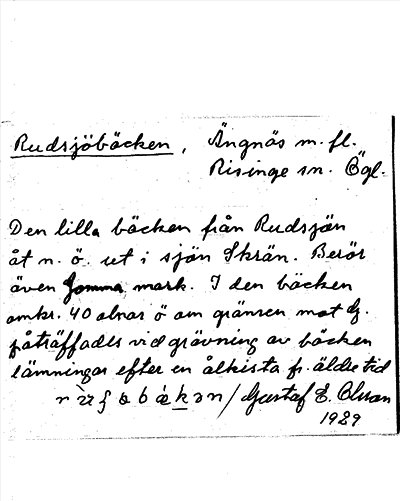 Rudsjöbäcken, Ängnäs m. fl.
Risinge sn. Ögl.
Den lilla bäcken från Rudsjön
åt n. ö. ut i sjön Skrän. Berör
även mark. I den bäcken
omkr. 40 alnar ö om gränsen mot
påträffades vid grävning av bäcken
lämningar efter en ålkista fr. äldre tid
/ Gustaf E. Olsson
1929